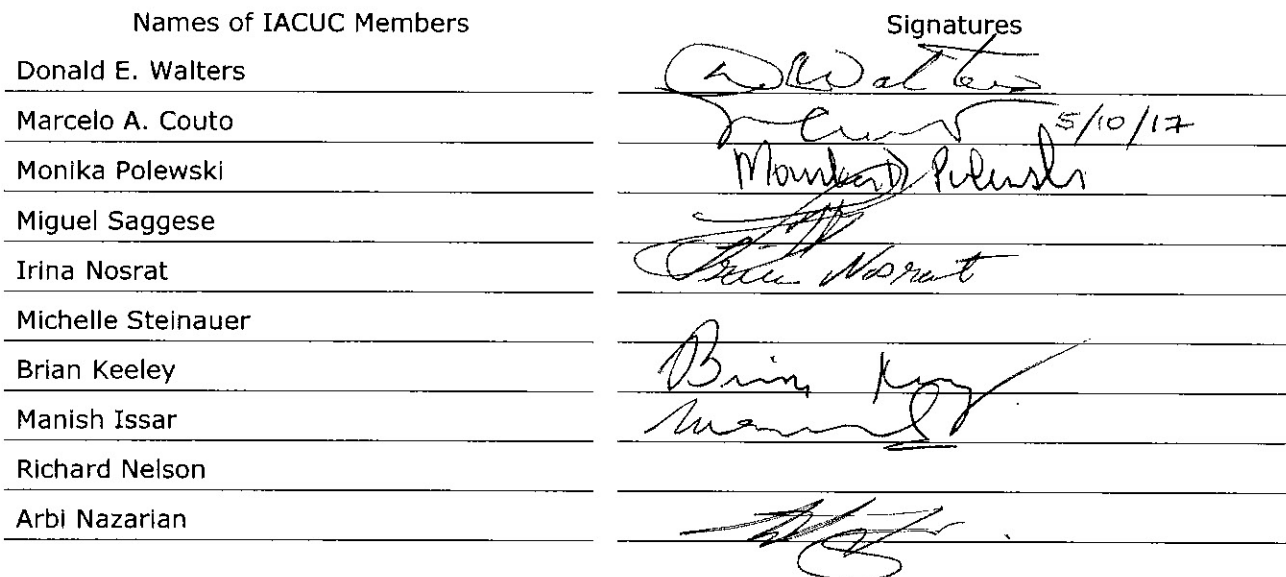 Names of IACUC Members Signatures
Donald E. Walters D E Walters
Marcelo A. Couto 5/10/17
Monika Polewski Monika D Polewski
Miguel Saggese
Irina Nosrat Irina Nosrat
Michelle Steinauer
Brian Keeley Brian
Manish Issar
Richard Nelson
Arbi Nazarian